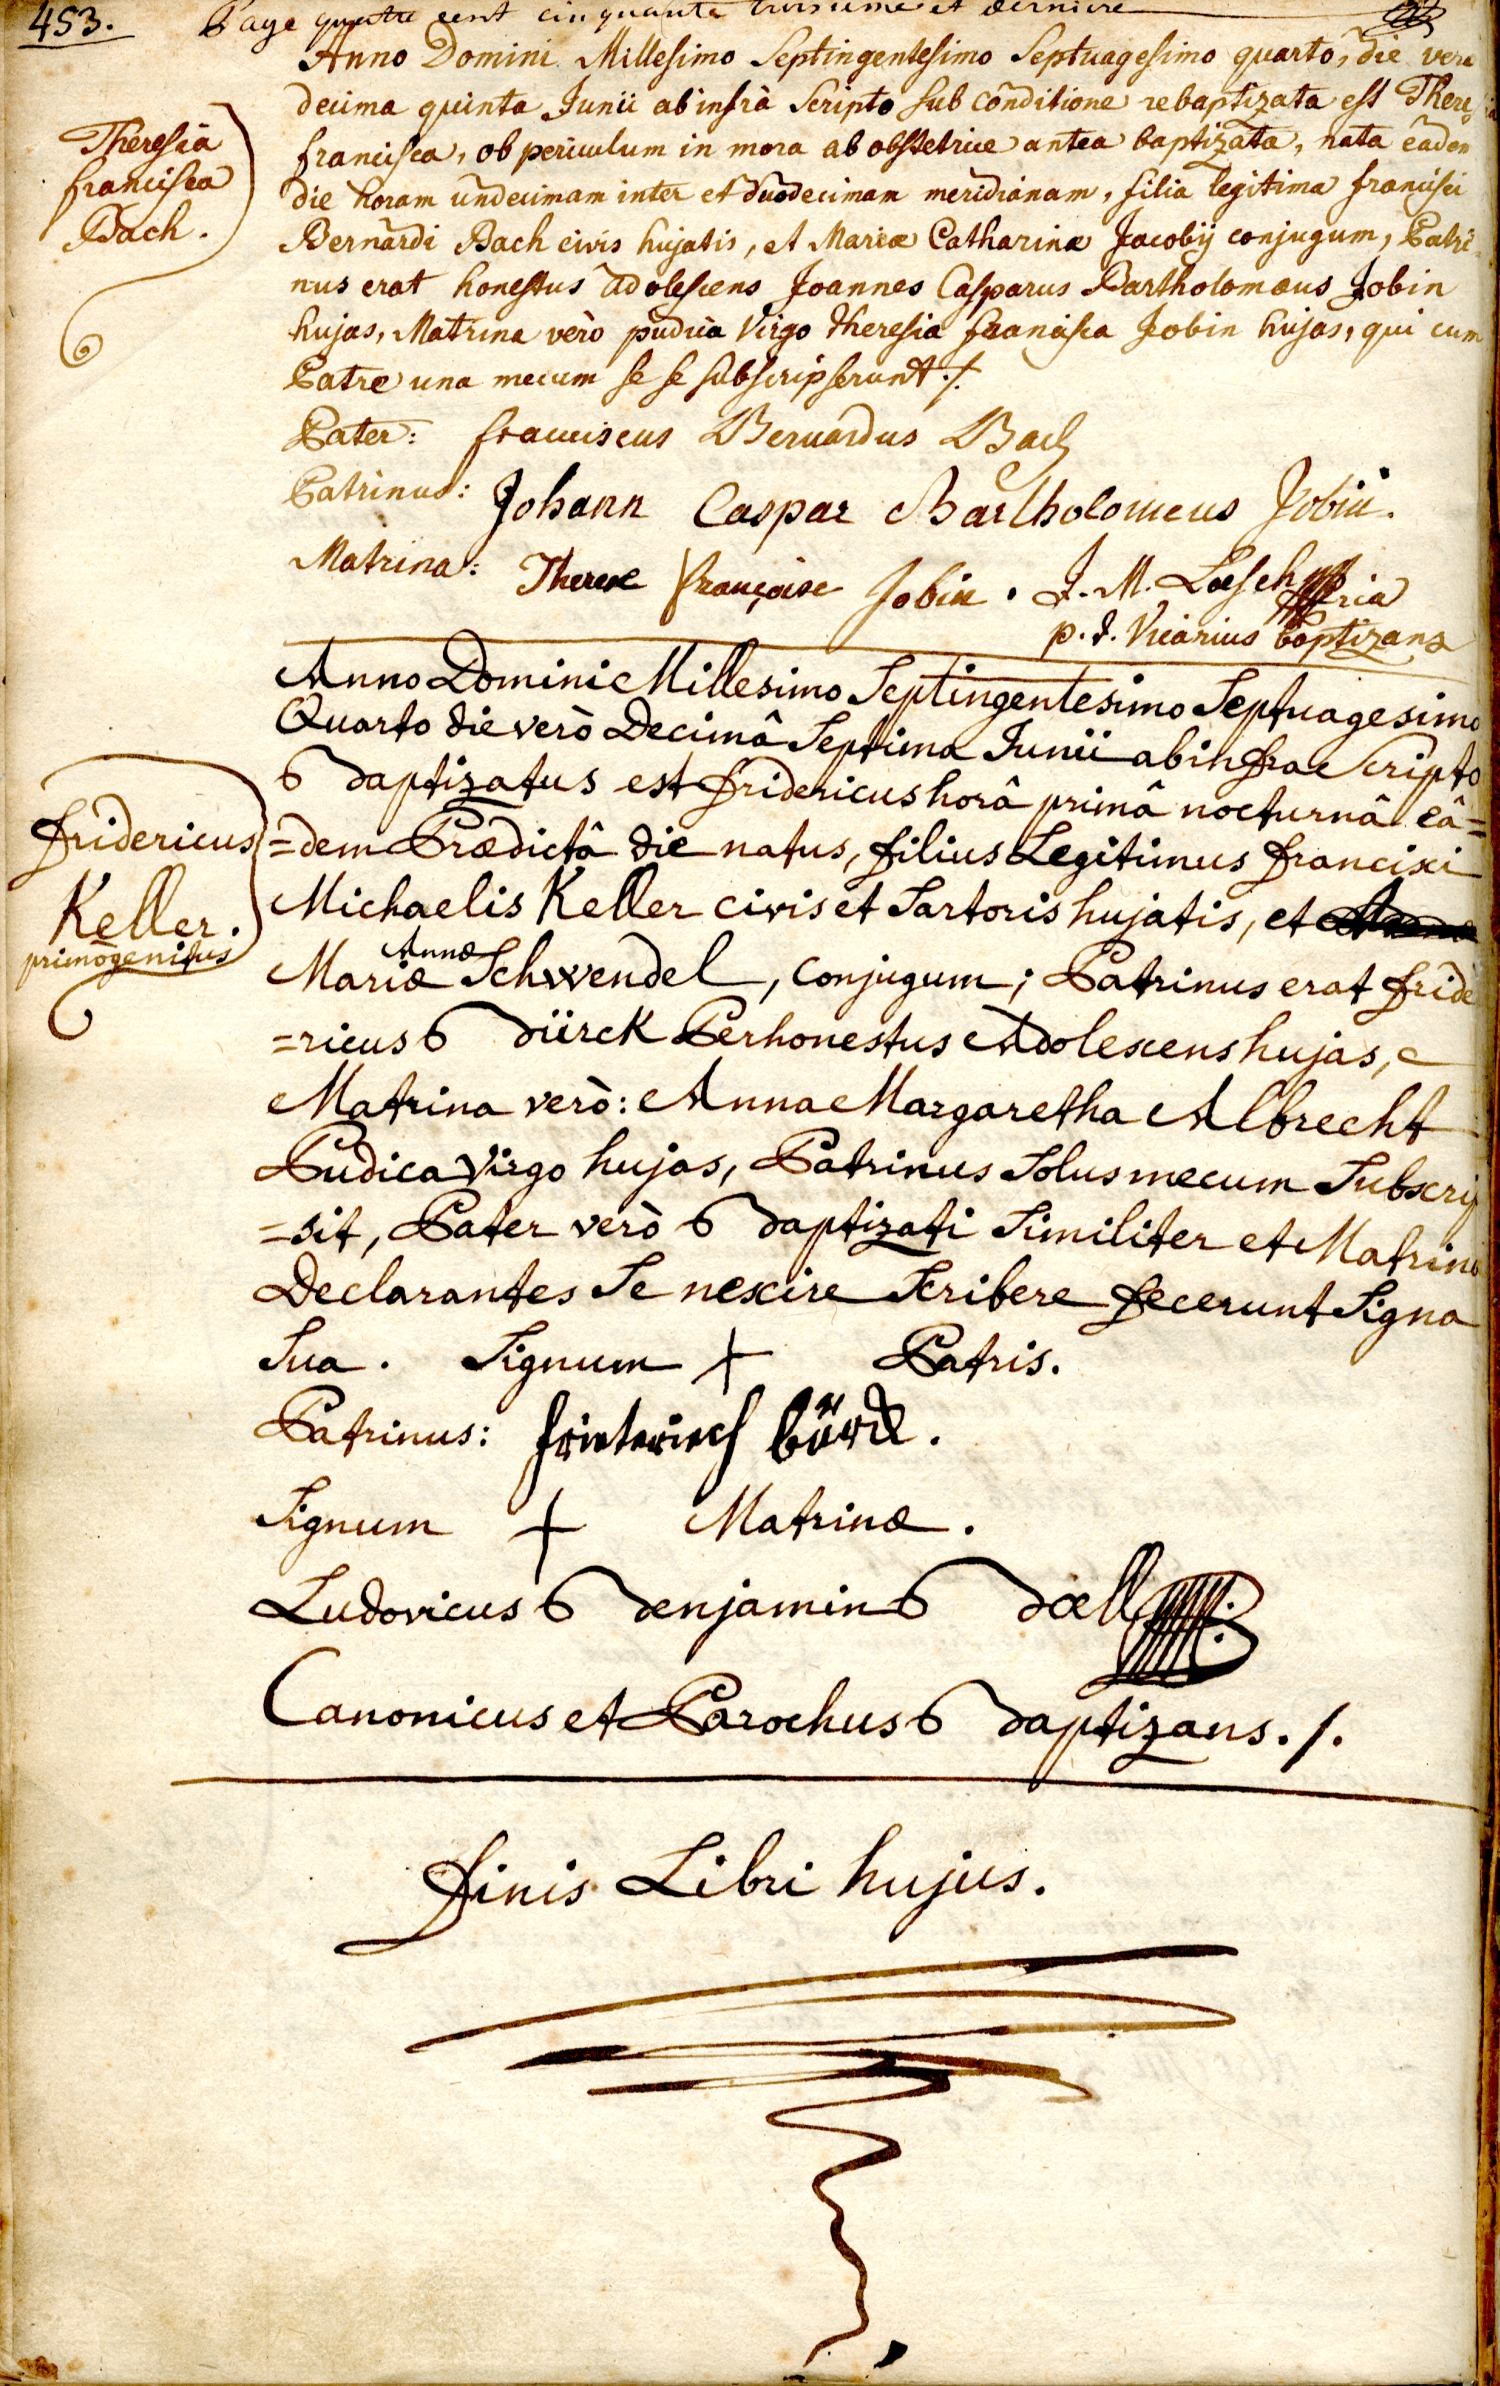 453. Page quatre cent cinquante troisieme et derniere
Anno Domini Millesimo Septingentesimo Septuagesimo quarto, die vero
decima quinta Junii ab infrà Scripto sub conditione rebaptizata est There
Theresia
francisca
Bach.
francisca, ob periculum in mora ab obstetrice antea baptizata, nata eadem
die horam undecimam inter et duodecimam meridianam, filia legitima francisci
Bernardi Bach civis hujatis, et Mariæ Catharinæ Jacobij conjugum, Patri-
nus erat honestus adolescens Joannes Casparus Bartholomæus Jobin
hujas, Matrina verò pudica Virgo theresia francisca Jobin hujas, qui cum
Patre una mecum se se subscripserunt ./.
Pater: franciscus Bernardus Bach
Patrinus: Johann Caspar Bartholomeus Jobin.
Matrina: Therese françoise Jobin. J. M. Loesch
p. t. Vicarius baptizans
Anno Domini Millesimo Septingentesimo Septuagesimo
Quarto die verò Decimâ Septima Junii ab infra Scripto
Baptizatus est fridericus horâ primâ nocturnâ eâ=
fridericus
Keller.
primogenitus
=dem Prædictâ die natus, filius Legitimus francisci
Michaelis Keller civis et Sartoris hujatis, et
Mariæ Annæ Schwendel, conjugum; Patrinus erat fride
=ricus Bürck Perhonestus Adolescens hujas,
Matrina verò: Anna Margaretha Albrecht
Pudica Virgo hujas, Patrinus Solus mecum Subscrip
=sit, Pater verò Baptizati Similiter et Matrina
Declarantes Se nescire Scribere fecerunt Signa
Sua. Signum + Patris.
Patrinus: frieterich bürck.
Signum + Matrinæ.
Ludovicus Benjamin Boell
Canonicus et Parochus Baptizans ./.
finis Libri hujus.